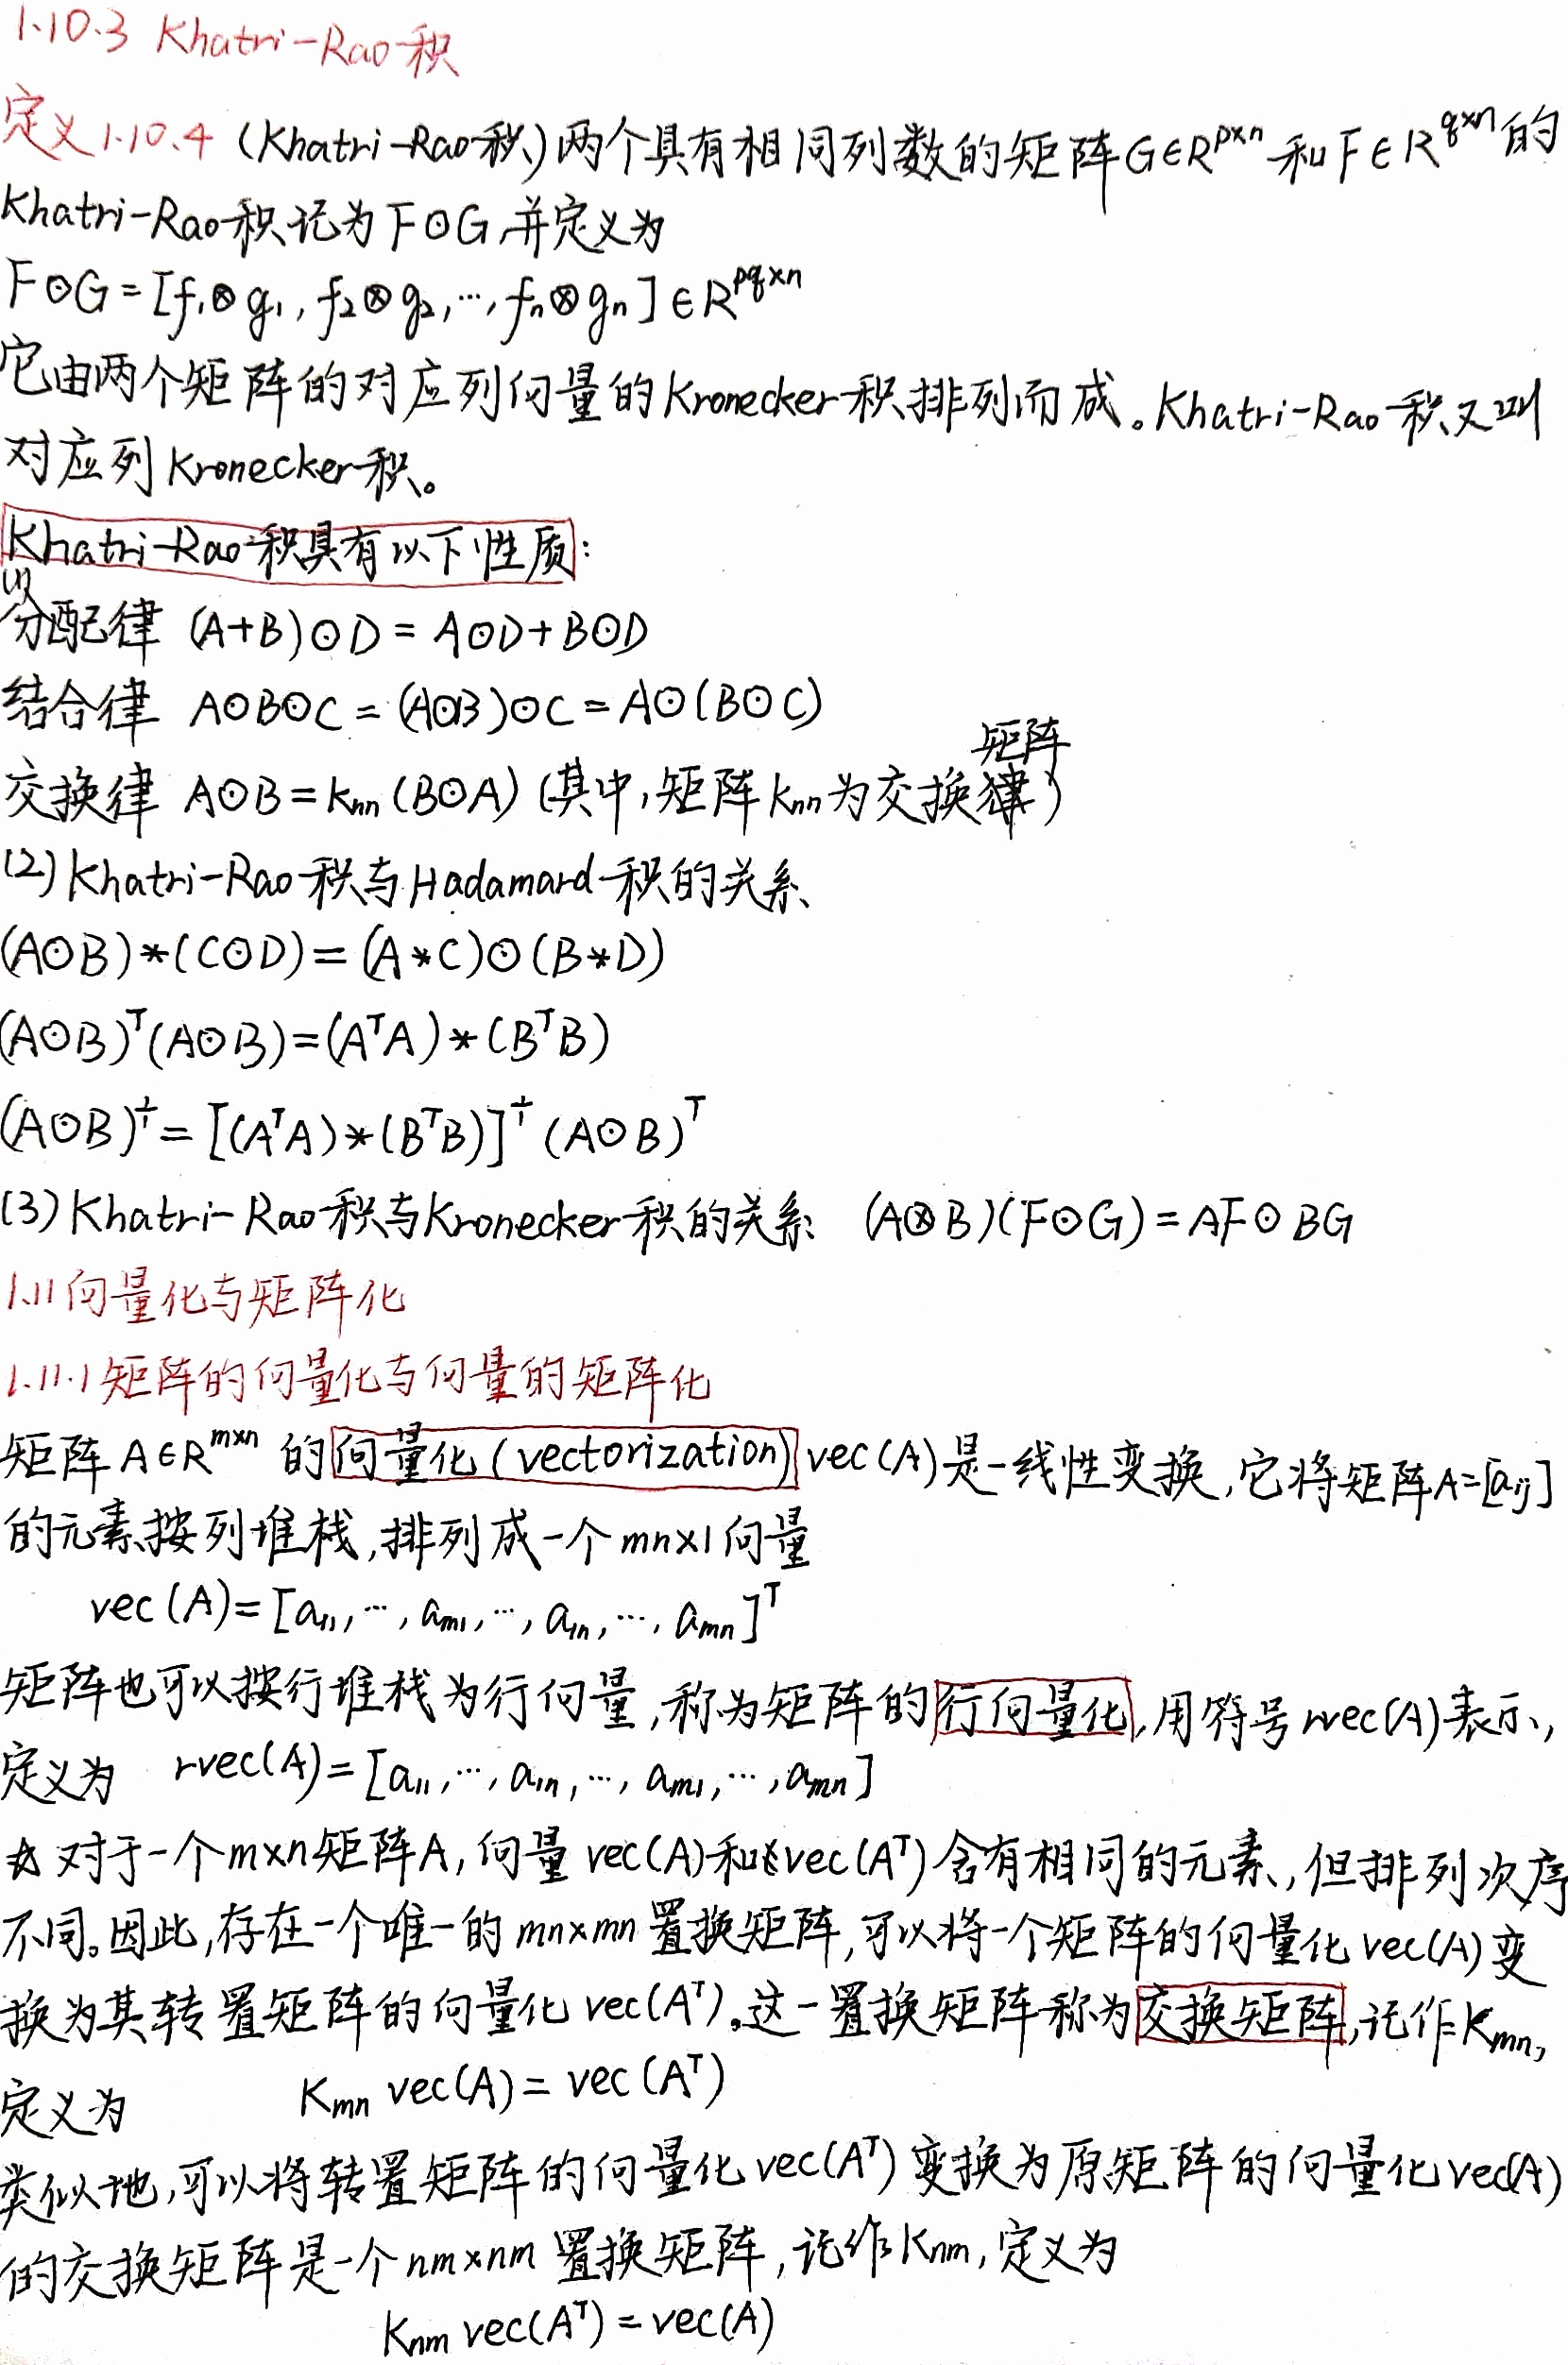 1.10.3 Khatri-Rao积
定义1.10.4 (Khatri-Rao积)两个具有相同列数的矩阵G∈R^{p×n}和F∈R^{q×n}的
Khatri-Rao积记为F⊙G,并定义为
F⊙G=[f₁⊗g₁, f₂⊗g₂,…, fₙ⊗gₙ]∈R^{pq×n}
它由两个矩阵的对应列向量的Kronecker积排列而成。Khatri-Rao积又叫
对应列Kronecker积。
Khatri-Rao积具有以下性质:
(1)
分配律 (A+B)⊙D=A⊙D+B⊙D
结合律 A⊙B⊙C=(A⊙B)⊙C=A⊙(B⊙C)
矩阵
交换律 A⊙B=K_{nn}(B⊙A) (其中,矩阵K_{nn}为交换律)
(2)Khatri-Rao积与Hadamard积的关系
(A⊙B)*(C⊙D)=(A*C)⊙(B*D)
(A⊙B)^T(A⊙B)=(A^TA)*(B^TB)
(A⊙B)^†=[(A^TA)*(B^TB)]^†(A⊙B)^T
(3)Khatri-Rao积与Kronecker积的关系 (A⊗B)(F⊙G)=AF⊙BG
1.11向量化与矩阵化
1.11.1矩阵的向量化与向量的矩阵化
矩阵A∈R^{m×n}的向量化(vectorization)vec(A)是一线性变换,它将矩阵A=[a_{ij}]
的元素按列堆栈,排列成一个mn×1向量
vec(A)=[a_{11},…,a_{m1},…,a_{1n},…,a_{mn}]^T
矩阵也可以按行堆栈为行向量,称为矩阵的行向量化,用符号rvec(A)表示,
定义为 rvec(A)=[a_{11},…,a_{1n},…,a_{m1},…,a_{mn}]
☆对于一个m×n矩阵A,向量vec(A)和vec(A^T)含有相同的元素,但排列次序
不同。因此,存在一个唯一的mn×mn置换矩阵,可以将一个矩阵的向量化vec(A)变
换为其转置矩阵的向量化vec(A^T)。这一置换矩阵称为交换矩阵,记作K_{mn},
定义为 K_{mn}vec(A)=vec(A^T)
类似地,可以将转置矩阵的向量化vec(A^T)变换为原矩阵的向量化vec(A)
的交换矩阵是一个nm×nm置换矩阵,记作K_{nm},定义为
K_{nm}vec(A^T)=vec(A)